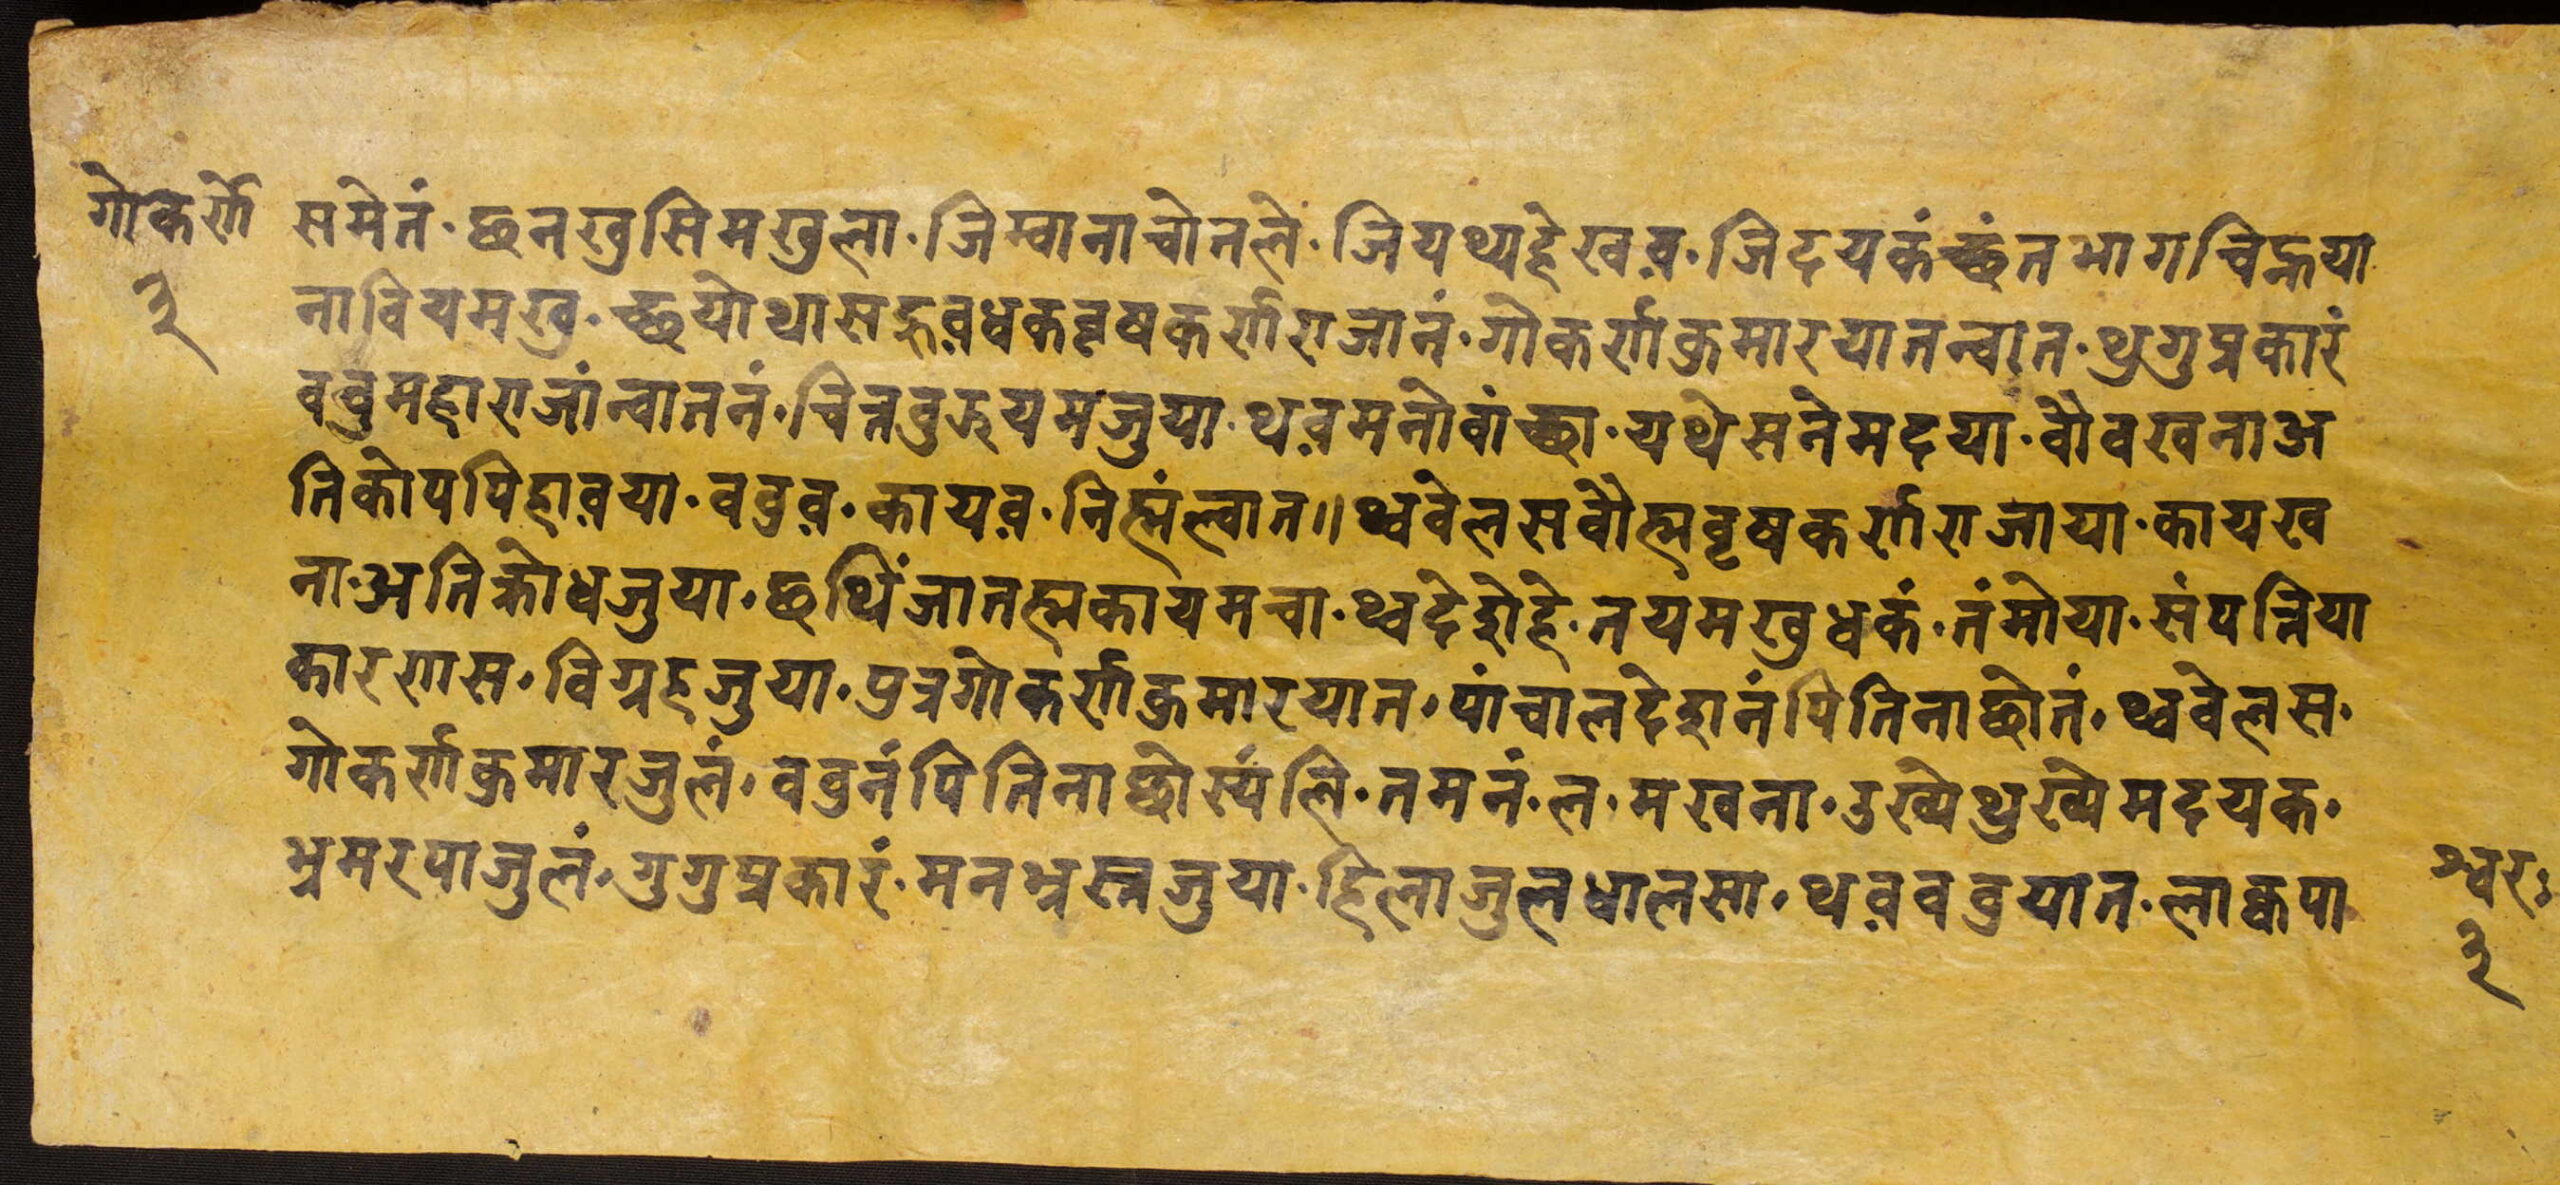 गोकर्णे
३
समेतं · छनखुसिमखुला · जिम्वानाचोनले · जियथ्यहेखव · जिदयकंच्छंतभागचिह्नया
नावियमखु · च्छयोथासह्रवधकवृषकर्णराजानं · गोकर्णकुमारयातन्वात · थुगुप्रकारं
ववुमहाराजांन्वातनं · चित्तवुझयमजुया · थवमनोवांच्छा · यथेसनेमदया · वौवखनाअ
तिकोपपिहावया · ववुव · कायव · निह्मंल्वात॥ थ्ववेलसवौह्मवृषकर्णराजाया · कायख
ना · अतिक्रोधजुया · छथिंजातह्मकायमचा · थ्वदेशेहे · नयमखुधकं · तंमोया · संपत्तिया
कारणस · विग्रहजुया · पुत्रगोकर्णकुमारयात · पांचालदेशनंपितिनाछोतं · थ्ववेलस ·
गोकर्णकुमारजुलं · ववुनंपितिनाछोर्स्यंलि · तमनं · ल · मखना · उख्येथुख्येमदयक ·
भ्रमरपाजुलं · गुगुप्रकारं · मनभ्रस्तजुया · हिलाजुलधालसा · थवववुयात · लाक्वपा
श्वरः
३